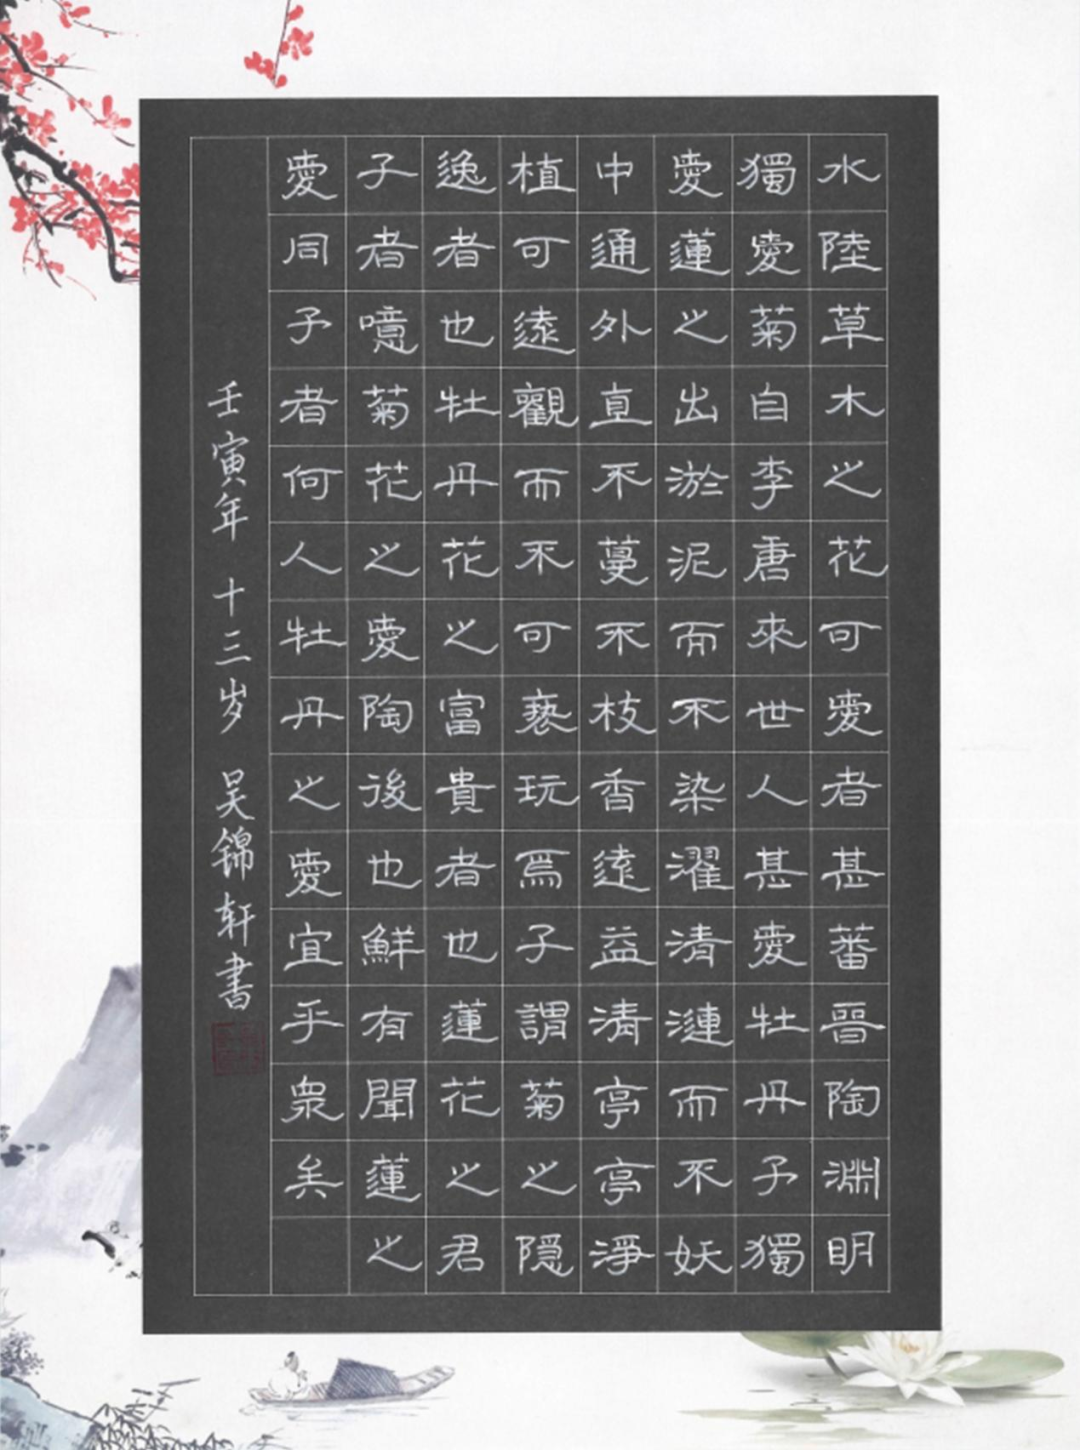 水陸草木之花可愛者甚蕃晉陶淵明
獨愛菊自李唐來世人甚愛牡丹予獨
愛蓮之出淤泥而不染濯清漣而不妖
中通外直不蔓不枝香遠益清亭亭淨
植可遠觀而不可褻玩焉予謂菊之隱
逸者也牡丹花之富貴者也蓮花之君
子者噫菊花之愛陶後也鮮有聞蓮之
愛同予者何人牡丹之愛宜乎眾矣
壬寅年 十三岁 吴锦轩書